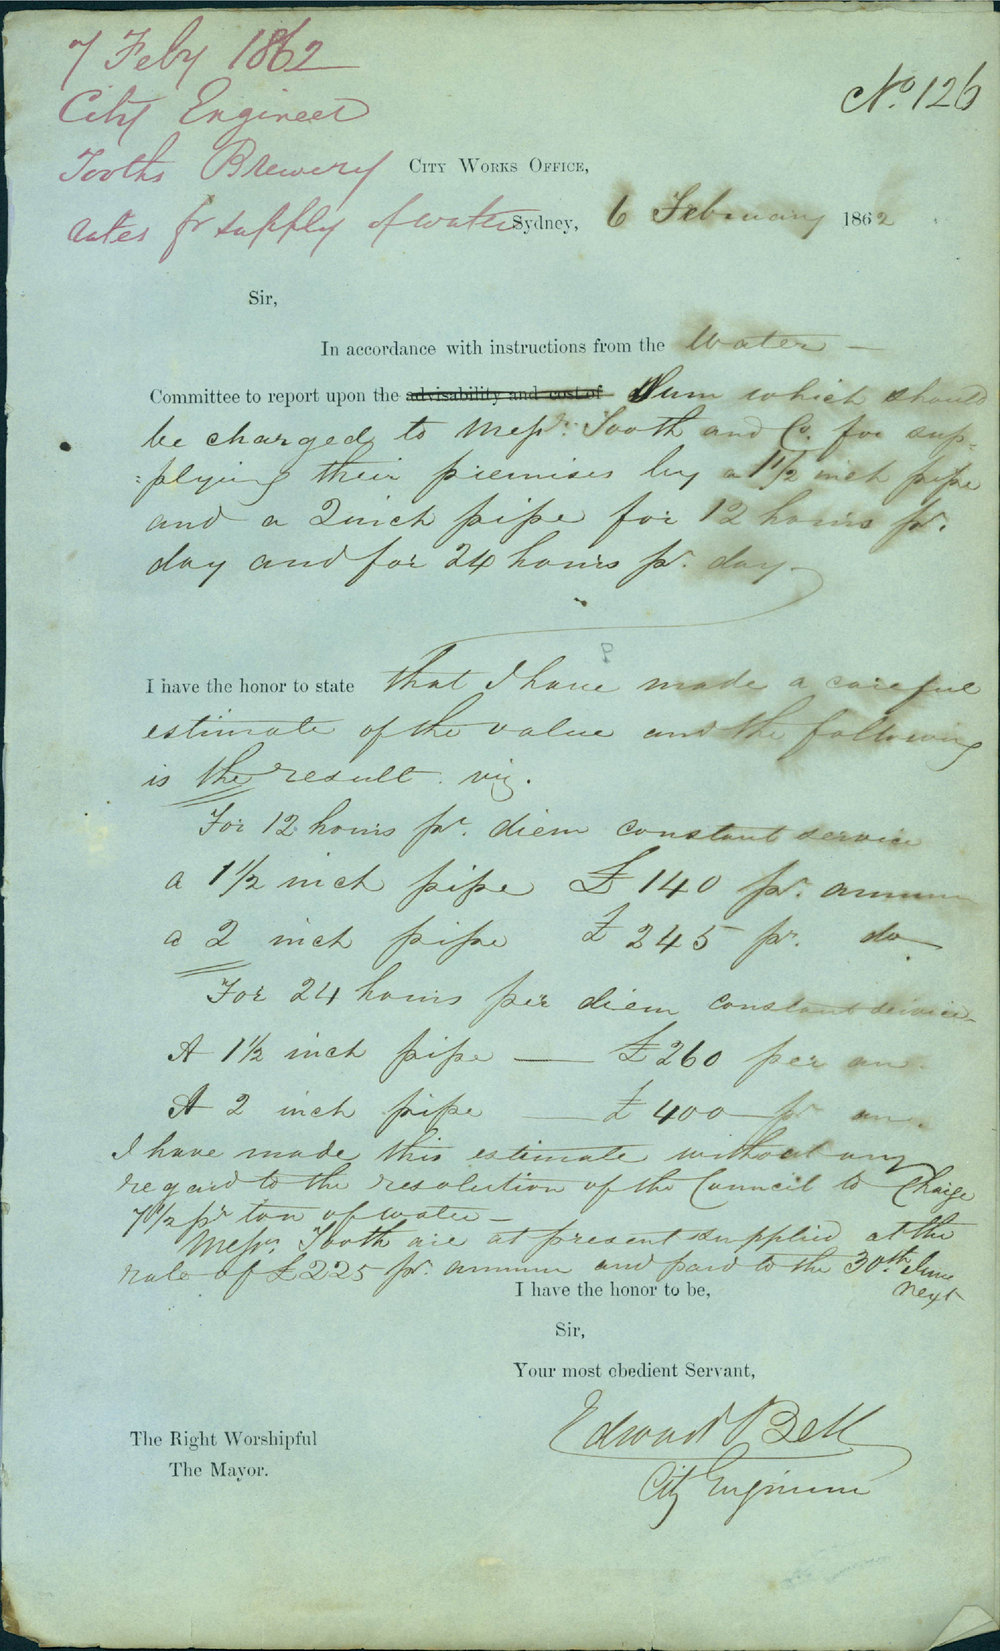 7 Feby 1862
City Engineer
Tooths Brewery
rates for supply of water
No. 126
City Works Office,
Sydney, 6 February 1862
Sir,
In accordance with instructions from the Water —
Committee to report upon the advisability and cost of Sum which should
be charged to Messrs. Tooth and Co. for sup-
:plying their premises by a 1 1/2 inch pipe
and a 2 inch pipe for 12 hours pr.
day and for 24 hours pr. day.
I have the honor to state that I have made a careful
estimate of the value and the following
is the result. viz.
For 12 hours pr. diem constant service
a 1 1/2 inch pipe £140 pr. annum
a 2 inch pipe £245 pr. do.
For 24 hours per diem constant service
A 1 1/2 inch pipe — £260 per an.
A 2 inch pipe — £400 pr an.
I have made this estimate without any
regard to the resolution of the Council to Charge
7 1/2 pr ton of water —
Messrs. Tooth are at present supplied at the
rate of £225 pr. annum and paid to the 30th. June
next
I have the honor to be,
Sir,
Your most obedient Servant,
Edward Bell
City Engineer
The Right Worshipful
The Mayor.